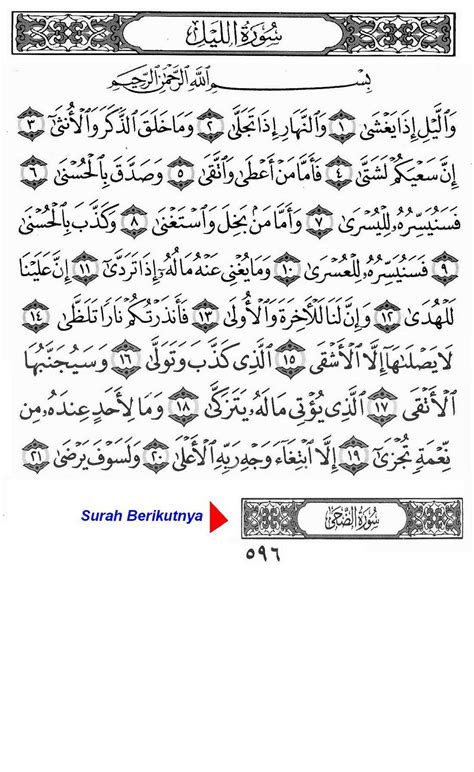 سُورَةُ اللَّيْلِ
بِسْمِ اللَّهِ الرَّحْمَٰنِ الرَّحِيمِ
وَٱلَّيْلِ إِذَا يَغْشَىٰ ١ وَٱلنَّهَارِ إِذَا تَجَلَّىٰ ٢ وَمَا خَلَقَ ٱلذَّكَرَ وَٱلْأُنثَىٰٓ ٣
إِنَّ سَعْيَكُمْ لَشَتَّىٰ ٤ فَأَمَّا مَنْ أَعْطَىٰ وَٱتَّقَىٰ ٥ وَصَدَّقَ بِٱلْحُسْنَىٰ ٦
فَسَنُيَسِّرُهُۥ لِلْيُسْرَىٰ ٧ وَأَمَّا مَنۢ بَخِلَ وَٱسْتَغْنَىٰ ٨ وَكَذَّبَ بِٱلْحُسْنَىٰ
٩ فَسَنُيَسِّرُهُۥ لِلْعُسْرَىٰ ١٠ وَمَا يُغْنِى عَنْهُ مَالُهُۥٓ إِذَا تَرَدَّىٰٓ ١١ إِنَّ عَلَيْنَا
لَلْهُدَىٰ ١٢ وَإِنَّ لَنَا لَلْـَٔاخِرَةَ وَٱلْأُولَىٰ ١٣ فَأَنذَرْتُكُمْ نَارًا تَلَظَّىٰ ١٤
لَا يَصْلَىٰهَآ إِلَّا ٱلْأَشْقَى ١٥ ٱلَّذِى كَذَّبَ وَتَوَلَّىٰ ١٦ وَسَيُجَنَّبُهَا
ٱلْأَتْقَى ١٧ ٱلَّذِى يُؤْتِى مَالَهُۥ يَتَزَكَّىٰ ١٨ وَمَا لِأَحَدٍ عِندَهُۥ مِن
نِّعْمَةٍ تُجْزَىٰٓ ١٩ إِلَّا ٱبْتِغَآءَ وَجْهِ رَبِّهِ ٱلْأَعْلَىٰ ٢٠ وَلَسَوْفَ يَرْضَىٰ ٢١
Surah Berikutnya
سُورَةُ الضُّحَىٰ
٥٩٦